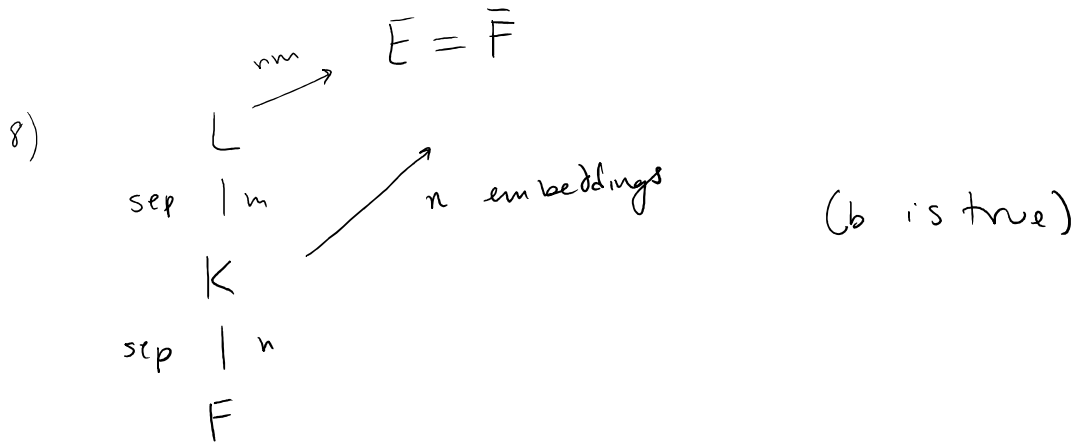 E = F̄
nm
8)
L
sep | m
n embeddings
(b is true)
K
sep | n
F